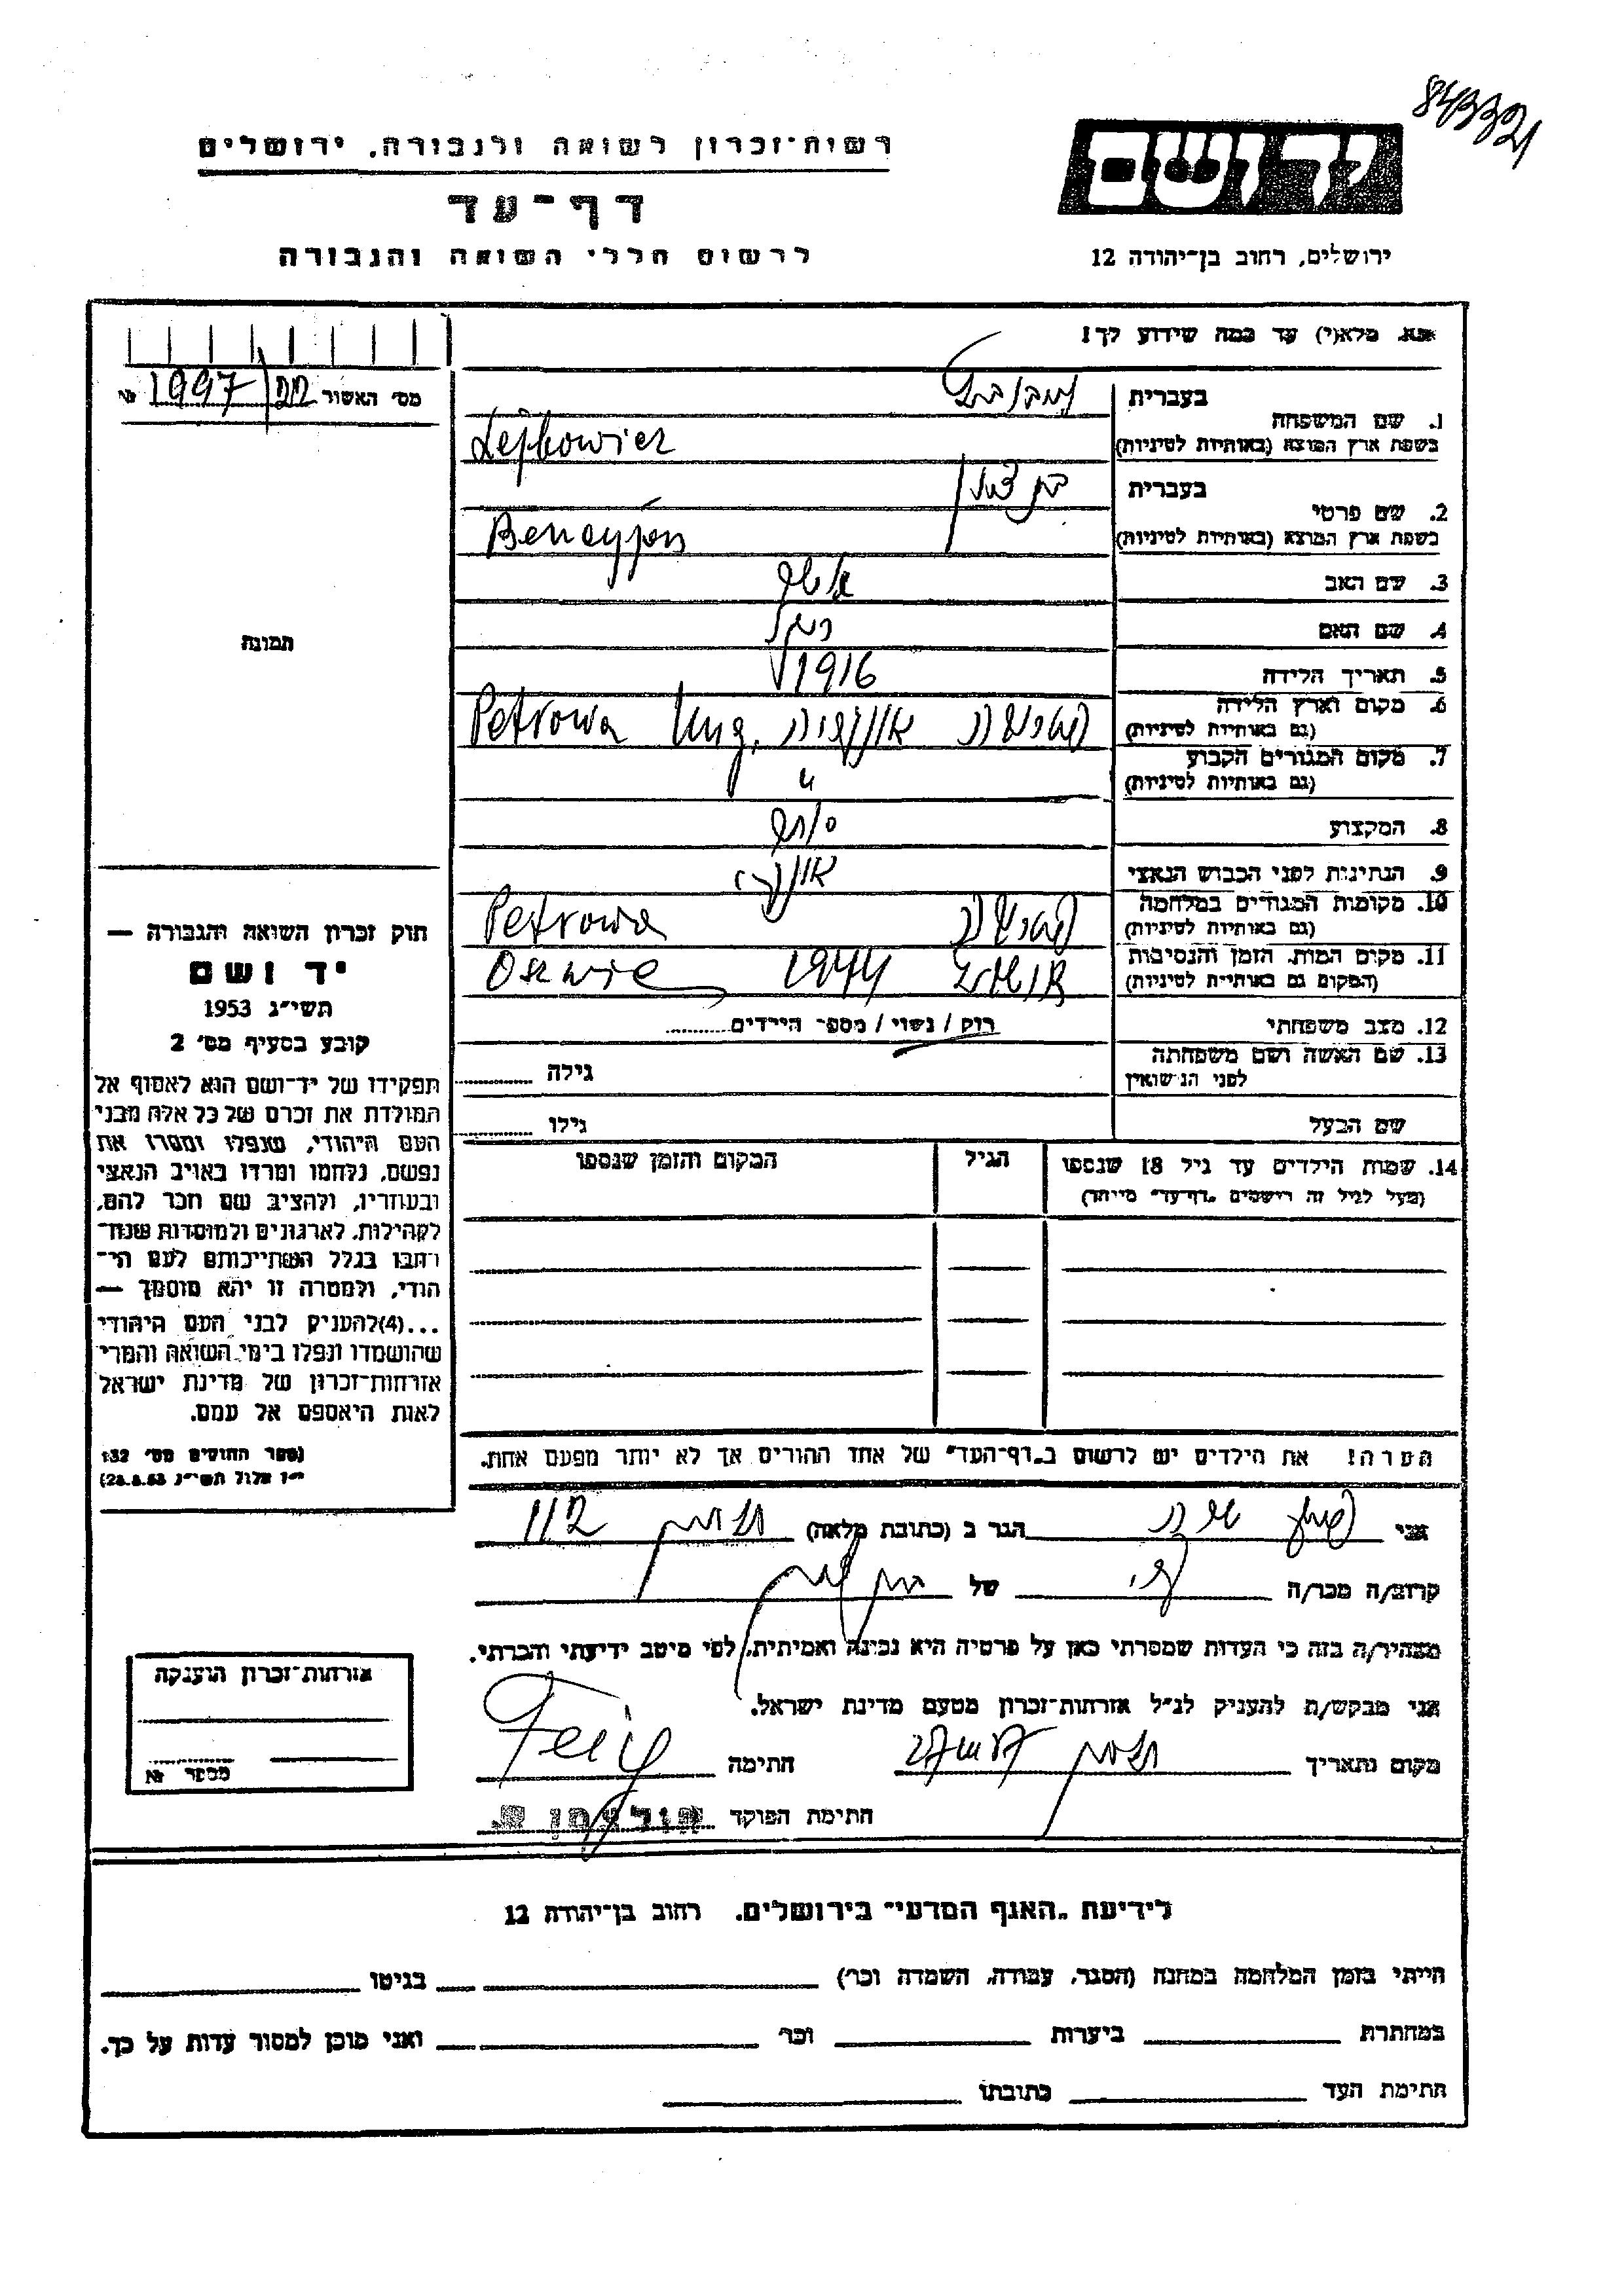 843321
יד ושם
רשות־זכרון לשואה ולגבורה, ירושלים
דף־עד
ירושלים, רחוב בן־יהודה 12
לרשום חללי השואה והגבורה
אנא, מלא(י) עד כמה שידוע לך!
מס׳ האשור 1997 №
בעברית לייבוביץ
1. שם המשפחה
בשפת ארץ המוצא (באותיות לטיניות) Lejbowicz
בעברית בן ציון
2. שם פרטי
בשפת ארץ המוצא (באותיות לטיניות) Bencyjón
3. שם האב
4. שם האם רחל
5. תאריך הלידה 1916
6. מקום וארץ הלידה
(גם באותיות לטיניות) פטרובה אונגריה Petrowa Ung.
7. מקום המגורים הקבוע
(גם באותיות לטיניות) "
8. המקצוע סוחר
9. הנתינות לפני הכבוש הנאצי אונגרי
10. מקומות המגורים במלחמה
(גם באותיות לטיניות) פטרובה Petrowa
11. מקום המות, הזמן והנסיבות
(המקום גם באותיות לטיניות) אושויץ 1944 Oswic
12. מצב משפחתי רווק / נשוי / מספר הילדים
13. שם האשה ושם משפחתה
לפני הנישואין גילה
שם הבעל גילו
14. שמות הילדים עד גיל 18 שנספו הגיל המקום והזמן שנספו
(מעל לגיל זה רושמים "דף־עד" מיוחד)
הערה! את הילדים יש לרשום ב"דף־העד" של אחד ההורים אך לא יותר מפעם אחת.
תמונה
חוק זכרון השואה והגבורה —
יד ושם
תשי״ג 1953
קובע בסעיף מס׳ 2
תפקידו של יד־ושם הוא לאסוף אל
המולדת את זכרם של כל אלה מבני
העם היהודי, שנפלו ומסרו את
נפשם, נלחמו ומרדו באויב הנאצי
ובעוזריו, ולהציב שם וזכר להם,
לקהילות, לארגונים ולמוסדות שנח־
רבו בגלל השתייכותם לעם הי־
הודי, ולמטרה זו יהא מוסמך —
...(4)להעניק לבני העם היהודי
שהושמדו ונפלו בימי השואה והמרי
אזרחות־זכרון של מדינת ישראל
לאות היאספם אל עמם.
(ספר החוקים מס׳ 132
י״ז אלול תשי״ג 28.8.53)
אני הגר ב (כתובת מלאה)
קרוב/ה מכר/ה של
מצהיר/ה בזה כי העדות שמסרתי כאן על פרטיה היא נכונה ואמיתית, לפי מיטב ידיעתי והכרתי.
אני מבקש/ת להעניק לנ״ל אזרחות־זכרון מטעם מדינת ישראל.
מקום ותאריך חתימה
חתימת הפוקד
אזרחות־זכרון הוענקה
מספר №
לידיעת "האגף המדעי" בירושלים, רחוב בן־יהודה 12
הייתי בזמן המלחמה במחנה (הסגר, עבודה, השמדה וכו׳) בגיטו
במחתרת ביערות וכו׳ ואני מוכן למסור עדות על כך.
חתימת העד כתובתו